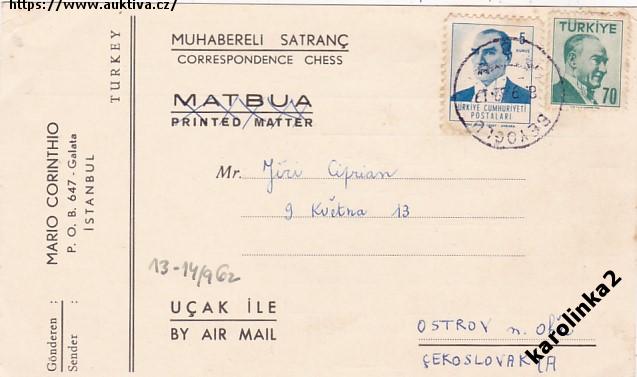 https://www.auktiva.cz/
TURKEY
MUHABERELİ SATRANÇ
CORRESPONDENCE CHESS
MATBUA
PRINTED MATTER
5
KURUŞ
TÜRKİYE CUMHURİYETİ
POSTALARI
TÜRKİYE
70
BEYOĞLU
Gönderen :
Sender :
MARIO CORINTHIO
P. O. B. 647 - Galata
İSTANBUL
Mr. Jiří Ciprian
9 Května 13
13-14/9 62
UÇAK İLE
BY AIR MAIL
OSTROV n.
ÇEKOSLOVAKYA
karolinka2